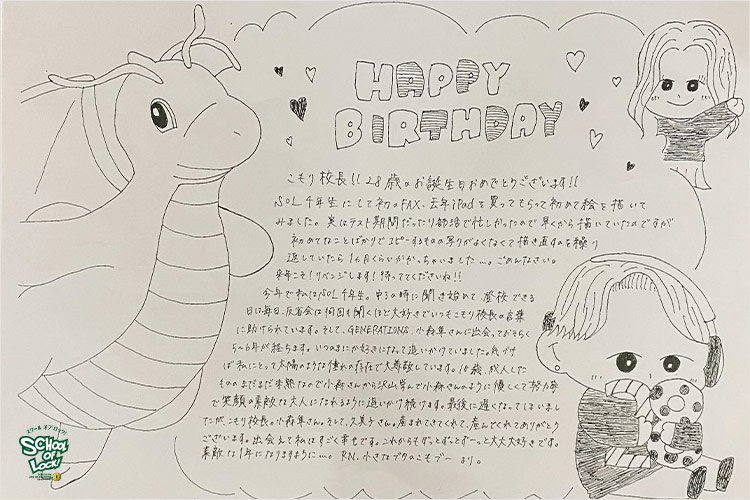 HAPPY
BIRTHDAY
こもり校長!! 28歳のお誕生日おめでとうございます!!
SOL千年生にして初のFAX、去年iPadを買ってもらって初めて絵を描いて
みました。実はテスト期間だったり部活で忙しかったので早くから描いていたのですが
初めてなことばかりでコピーするもの写りがよくなくて描き直すのを繰り
返していたら1ヵ月くらいかかっちゃいました…。ごめんなさい。
来年こそ!リベンジします!待っててくださいね!!
今年で私はSOL千年生。中3の時に聞き始めて登校できる
日は毎日、反省会は何回も聞くほど大好きでいつもこもり校長の言葉
に助けられています。そして、GENERATIONS、小森隼さんに出会っておそらく
5〜6年が経ちます。いつのまにか好きになって追いかけていました。気づけ
ば私にとって太陽のような憧れの存在で大尊敬しています。18歳、成人した
もののまだまだ未熟なので小森さんから沢山学んで小森さんのように優しくて努力家
で笑顔の素敵な大人になれるように追いかけ続けます。最後に遅くなってしまいまし
たが、こもり校長。小森隼さん。そして、久美子さん。産まれてきてくれて、産んでくれてありがとう
ございます。出会えて私はすごく幸せです。これからもずっとずっとずーっと大大大好きです。
素敵な1年になりますように…。 RN、小さなブタのこもブー より。
スクール オブ ロック!
SCHOOL
OF
LOCK!